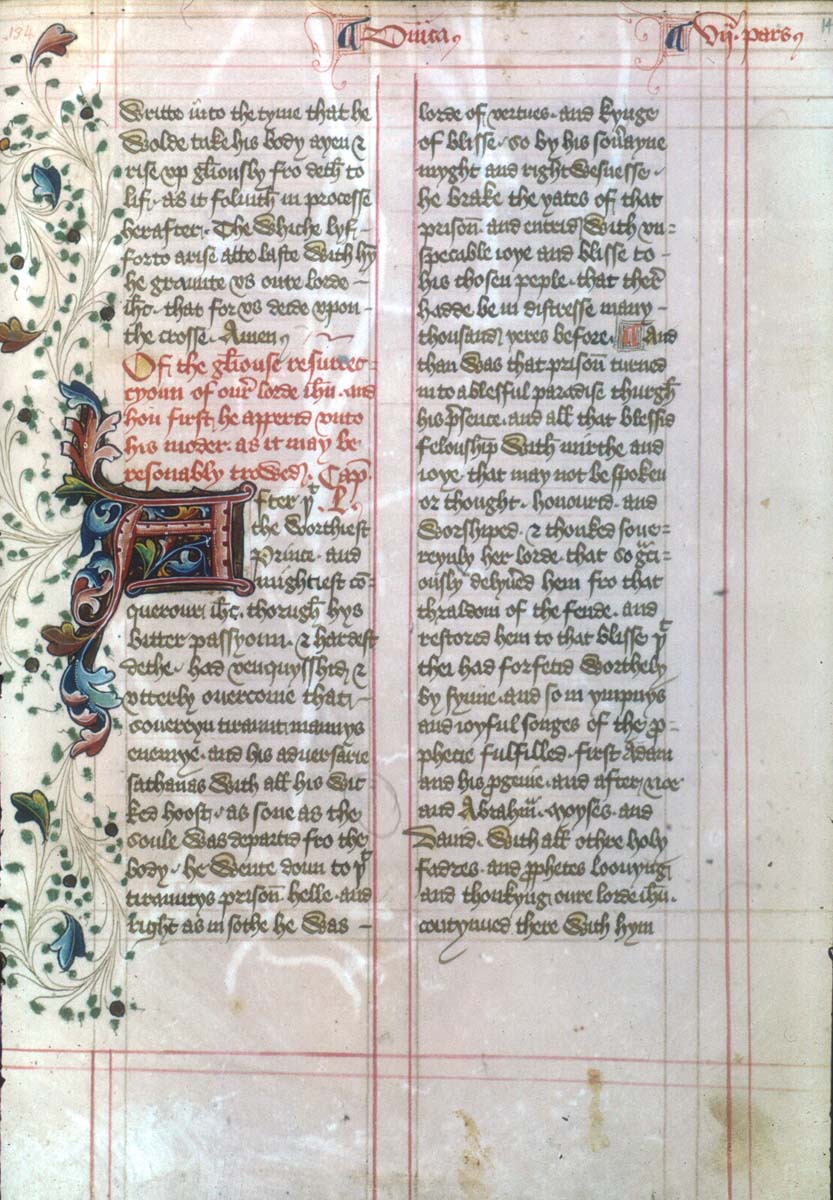 134
Dn̄ica
vij pars
writto in to the tyme that he
wolde take his body ayen &
rise vp gl̄iously fro deth to
lif as it folwith in processe
herafter. The whiche lyf
forto arise atte laste with hȳ
he graunte vs oure lorde
ih̄c that for vs deide vpon
the crosse Amen
Of the gl̄iouse resurrec-
cyoun of our lorde ih̄u and
hou first he apperid vnto
his moder as it may be
resonably trowed. Cap̄
.L.
After yͭ
the worthiest
Prince and
mightiest cō=
querour ih̄c thorugh hys
bitter passyoun & hardest
dethe had venquysshid &
vtterly ouercome that
souereyn tiraunt mannys
enemye and his aduersarie
sathanas with all his wic
ked hoost as sone as the
soule was departid fro the
body he wente doun to yͭ
tirauntys prison̄ helle and
right as in sothe he was
lorde of vertues and kynge
of blisse so by his sou̾ayne
myght and rightwesnesse
he brake the yates of that
prison̄ and entrid with vn=
specable ioye and blisse to
his chosen peple that ther
hadde be in distresse many
thousand yeres before ¶ And
than was that prison̄ turned
in to a blesful paradise thurgh
his p̄sence and all that blessid
felouship with mirthe and
ioye that may not be spoken
or thought honourid and
worshiped & thonked soue-
reynly her lorde that so gͣci
ously delyu̾ed hem fro that
thraldom of the fende and
restored hem to that blisse yͭ
thei had forfetid worthely
by synne and so in ympnys
and ioyful songes of the p̄=
phecie fulfilled first Adam
and his p̄genie and after noe
and Abraham moyses and
Dauid with all othre holy
fadres and p̄phetes loouyng
and thonkyng oure lorde ih̄u
contynued there with hym